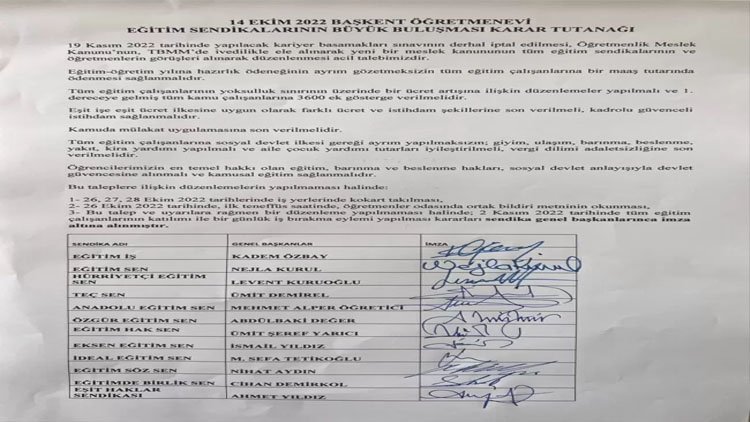 14 EKİM 2022 BAŞKENT ÖĞRETMENEVİ
EĞİTİM SENDİKALARININ BÜYÜK BULUŞMASI KARAR TUTANAĞI
19 Kasım 2022 tarihinde yapılacak kariyer basamakları sınavının derhal iptal edilmesi, Öğretmenlik Meslek
Kanunu'nun, TBMM'de ivedilikle ele alınarak yeni bir meslek kanununun tüm eğitim sendikalarının ve
öğretmenlerin görüşleri alınarak düzenlenmesi acil talebimizdir.
Eğitim-öğretim yılına hazırlık ödeneğinin ayrım gözetmeksizin tüm eğitim çalışanlarına bir maaş tutarında
ödenmesi sağlanmalıdır.
Tüm eğitim çalışanlarının yoksulluk sınırının üzerinde bir ücret artışına ilişkin düzenlemeler yapılmalı ve 1.
dereceye gelmiş tüm kamu çalışanlarına 3600 ek gösterge verilmelidir.
Eşit işe eşit ücret ilkesine uygun olarak farklı ücret ve istihdam şekillerine son verilmeli, kadrolu güvenceli
istihdam sağlanmalıdır.
Kamuda mülakat uygulamasına son verilmelidir.
Tüm eğitim çalışanlarına sosyal devlet ilkesi gereği ayrım yapılmaksızın; giyim, ulaşım, barınma, beslenme,
yakıt, kira yardımı yapılmalı ve aile çocuk yardımı tutarları iyileştirilmeli, vergi dilimi adaletsizliğine son
verilmelidir.
Öğrencilerimizin en temel hakkı olan eğitim, barınma ve beslenme hakları, sosyal devlet anlayışıyla devlet
güvencesine alınmalı ve kamusal eğitim sağlanmalıdır.
Bu taleplere ilişkin düzenlemelerin yapılmaması halinde:
1- 26, 27, 28 Ekim 2022 tarihlerinde iş yerlerinde kokart takılması,
2- 26 Ekim 2022 tarihinde, ilk teneffüs saatinde, öğretmenler odasında ortak bildiri metninin okunması,
3- Bu talep ve uyarılara rağmen bir düzenleme yapılmaması halinde; 2 Kasım 2022 tarihinde tüm eğitim
çalışanlarının katılımı ile bir günlük iş bırakma eylemi yapılması kararları sendika genel başkanlarınca imza
altına alınmıştır.
SENDİKA ADI GENEL BAŞKANLAR İMZA
EĞİTİM İŞ KADEM ÖZBAY
EĞİTİM SEN NEJLA KURUL
HÜRRİYETÇİ EĞİTİM
SEN LEVENT KURUOĞLU
TEÇ SEN ÜMİT DEMİREL
ANADOLU EĞİTİM SEN MEHMET ALPER ÖĞRETİCİ
ÖZGÜR EĞİTİM SEN ABDÜLBAKİ DEĞER
EĞİTİM HAK SEN ÜMİT ŞEREF YARICI
EKSEN EĞİTİM SEN İSMAİL YILDIZ
İDEAL EĞİTİM SEN M. SEFA TETİKOĞLU
EĞİTİM SÖZ SEN NİHAT AYDIN
EĞİTİMDE BİRLİK SEN CİHAN DEMİRKOL
EŞİT HAKLAR
SENDİKASI AHMET YILDIZ